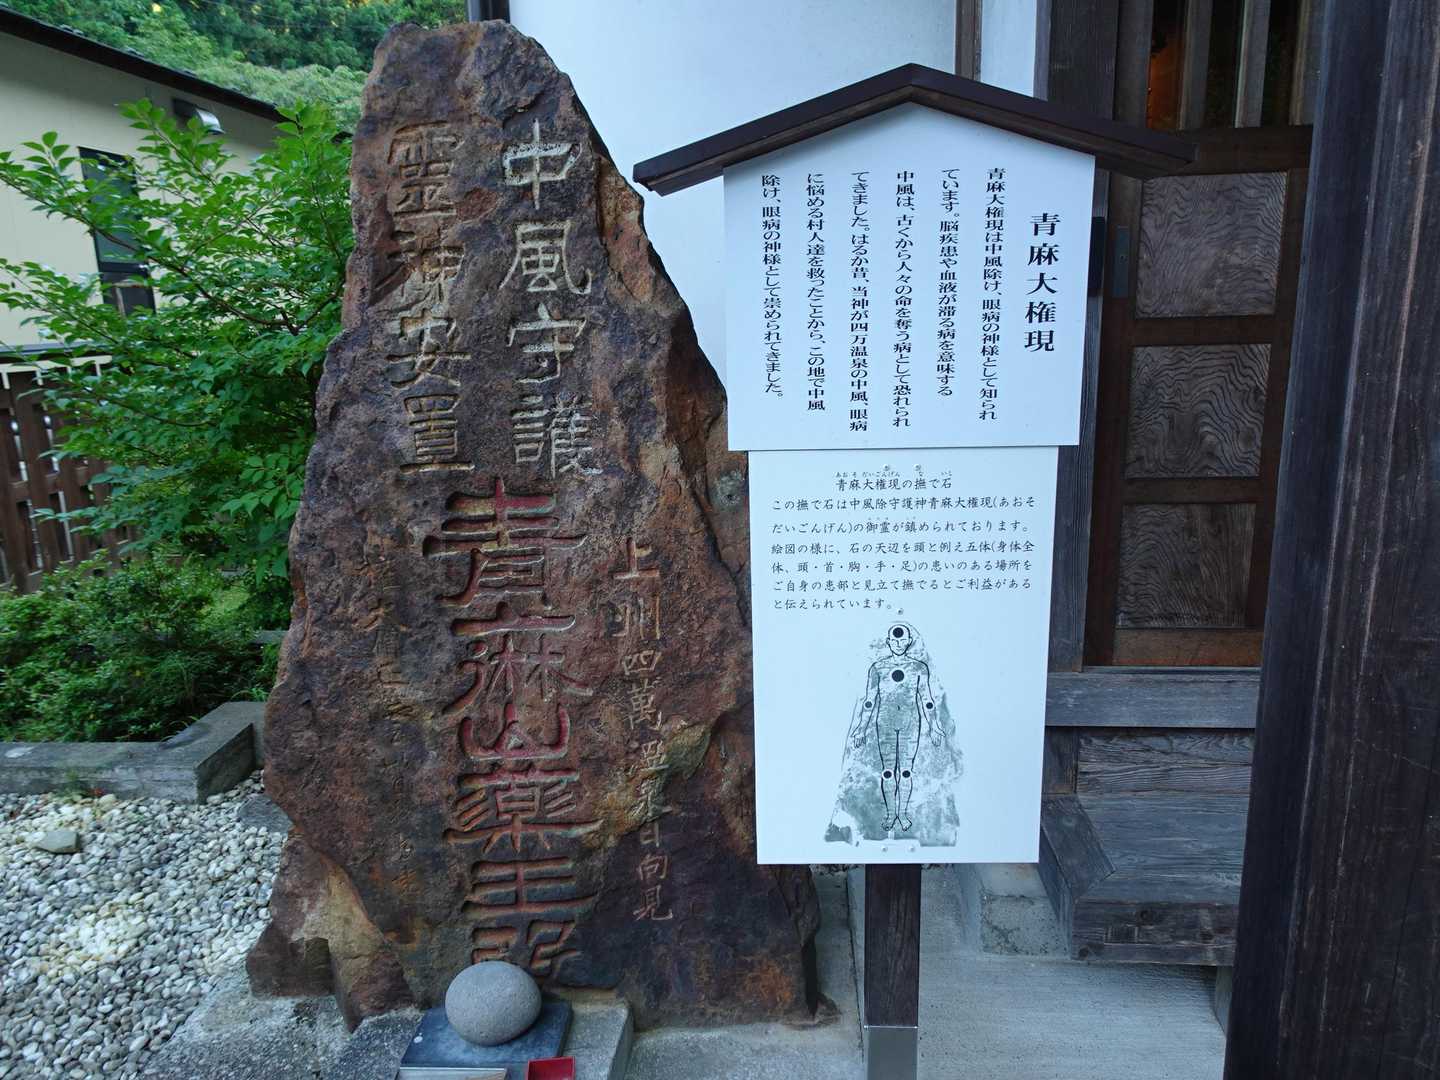 中風守護
霊神安置
青麻山薬王
上州四萬温泉日向見
青麻大権現
青麻大権現は中風除け、眼病の神様として知られ
ています。脳疾患や血液が滞る病を意味する
中風は、古くから人々の命を奪う病として恐れられ
てきました。はるか昔、当神が四万温泉の中風、眼病
に悩める村人達を救ったことから、この地で中風
除け、眼病の神様として崇められてきました。
青麻大権現の撫で石
この撫で石は中風除守護神青麻大権現(あおそ
だいごんげん)の御霊が鎮められております。
絵図の様に、石の天辺を頭と例え五体(身体全
体、頭・首・胸・手・足)の患いのある場所を
ご自身の患部と見立て撫でるとご利益がある
と伝えられています。